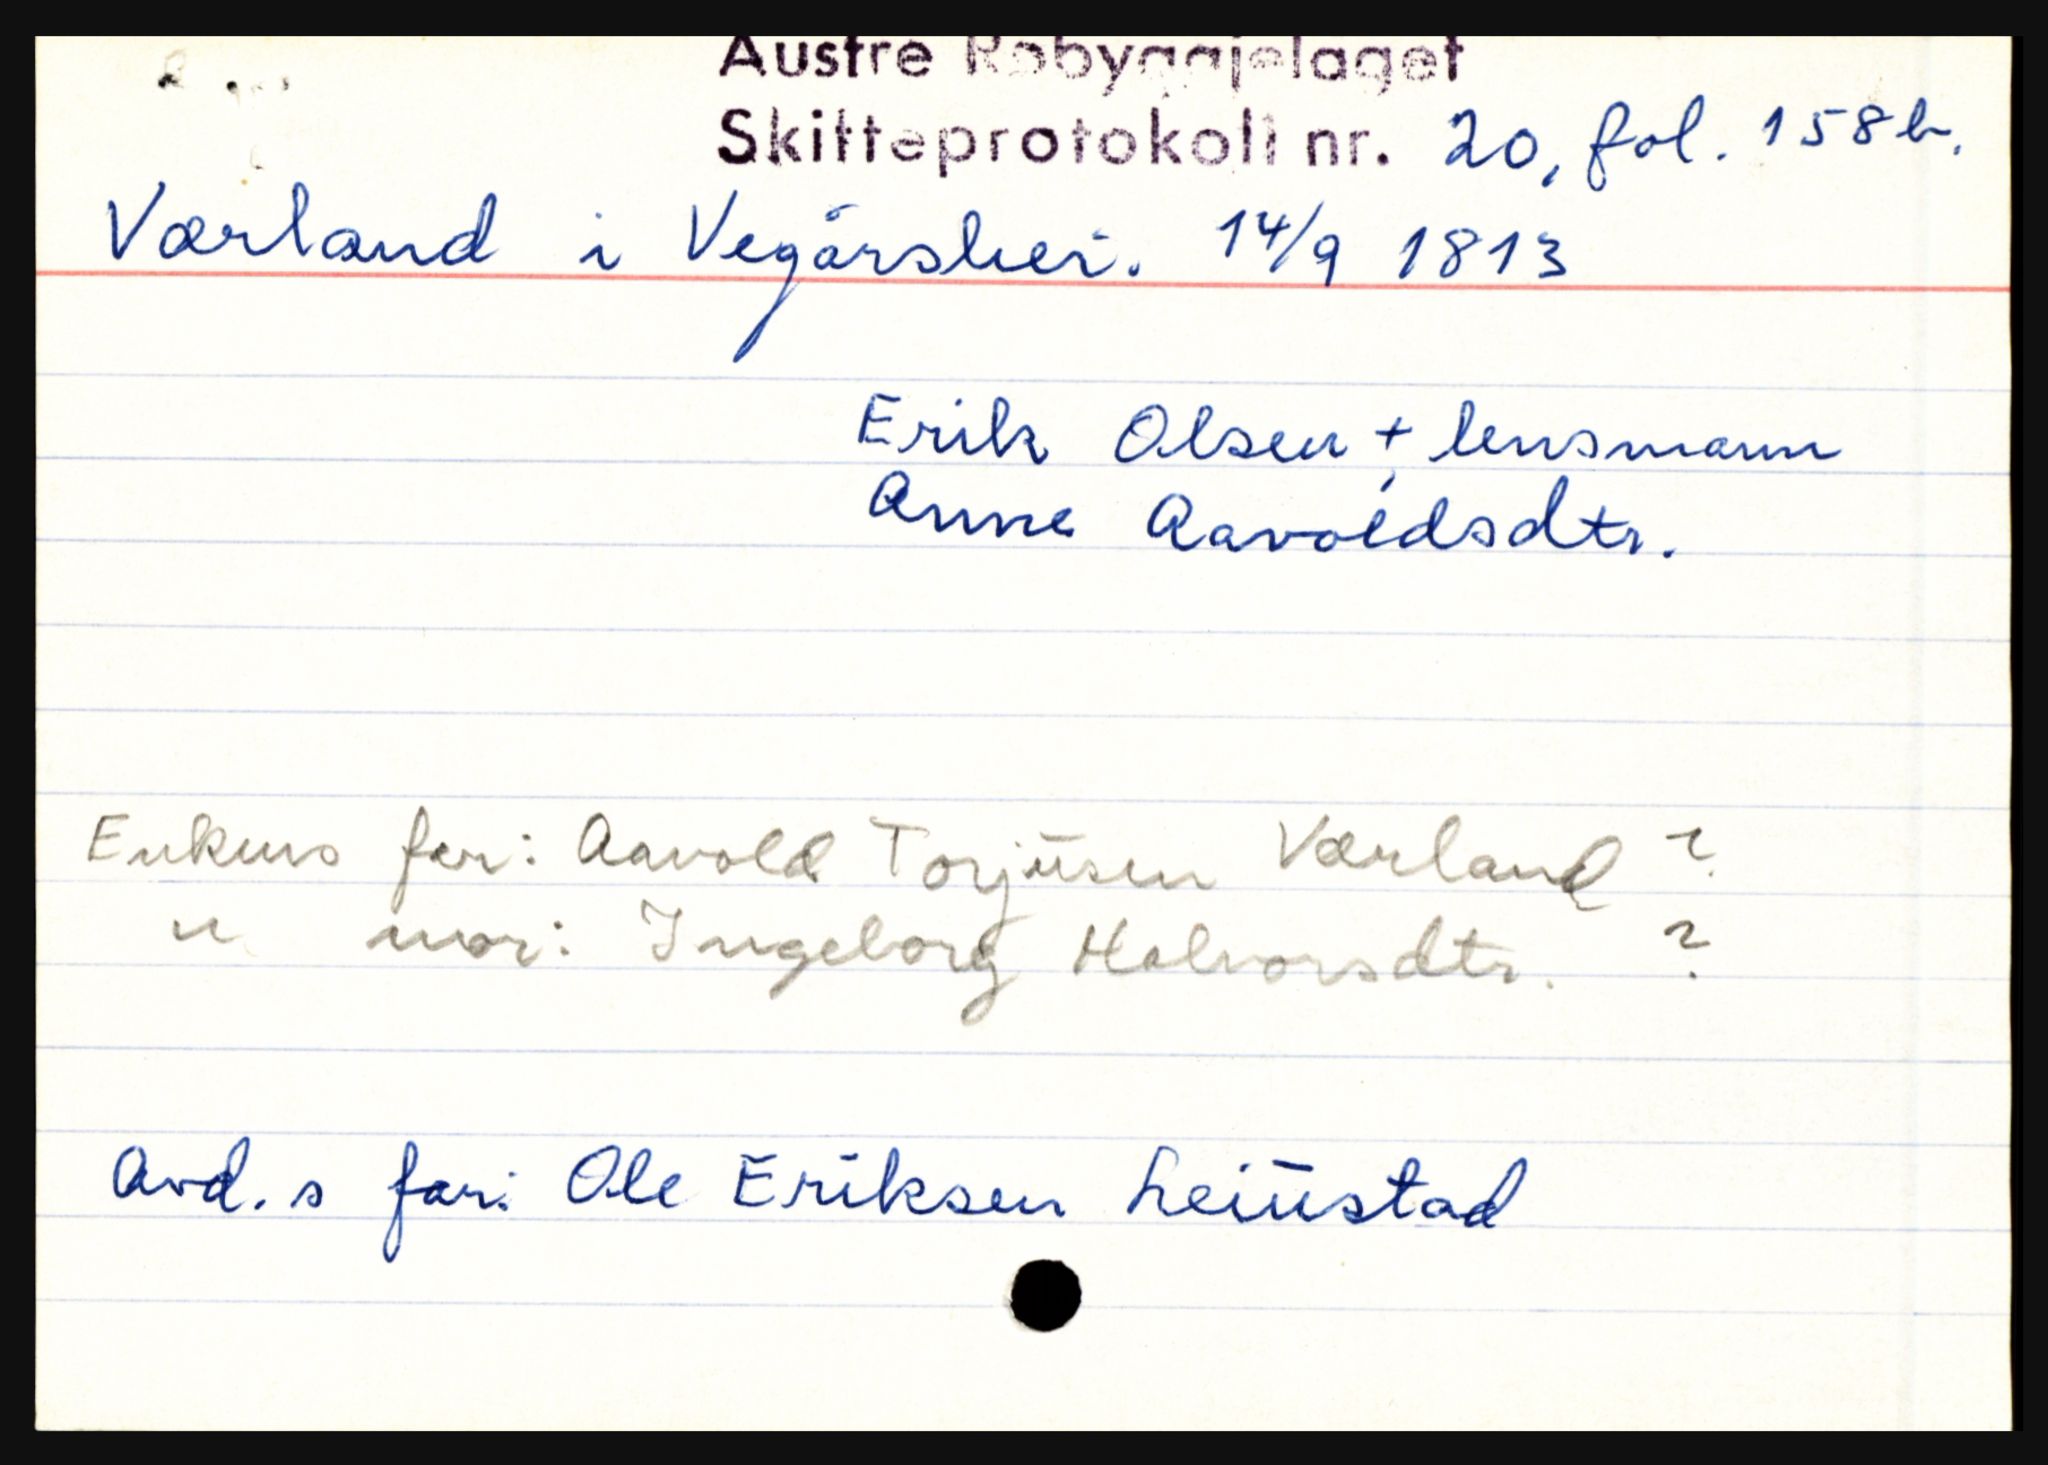 Austre Robyggjelaget
Skifteprotokoll nr. 20, fol. 158b.
Værland i Vegårshei. 14/9 1813
Erik Olsen + lensmann
Anne Aavoldsdtr.
Enkens far: Aavold Torjusen Værland ?
" mor: Ingeborg Halvorsdtr. ?
Avd. s far: Ole Eriksen Leiustad